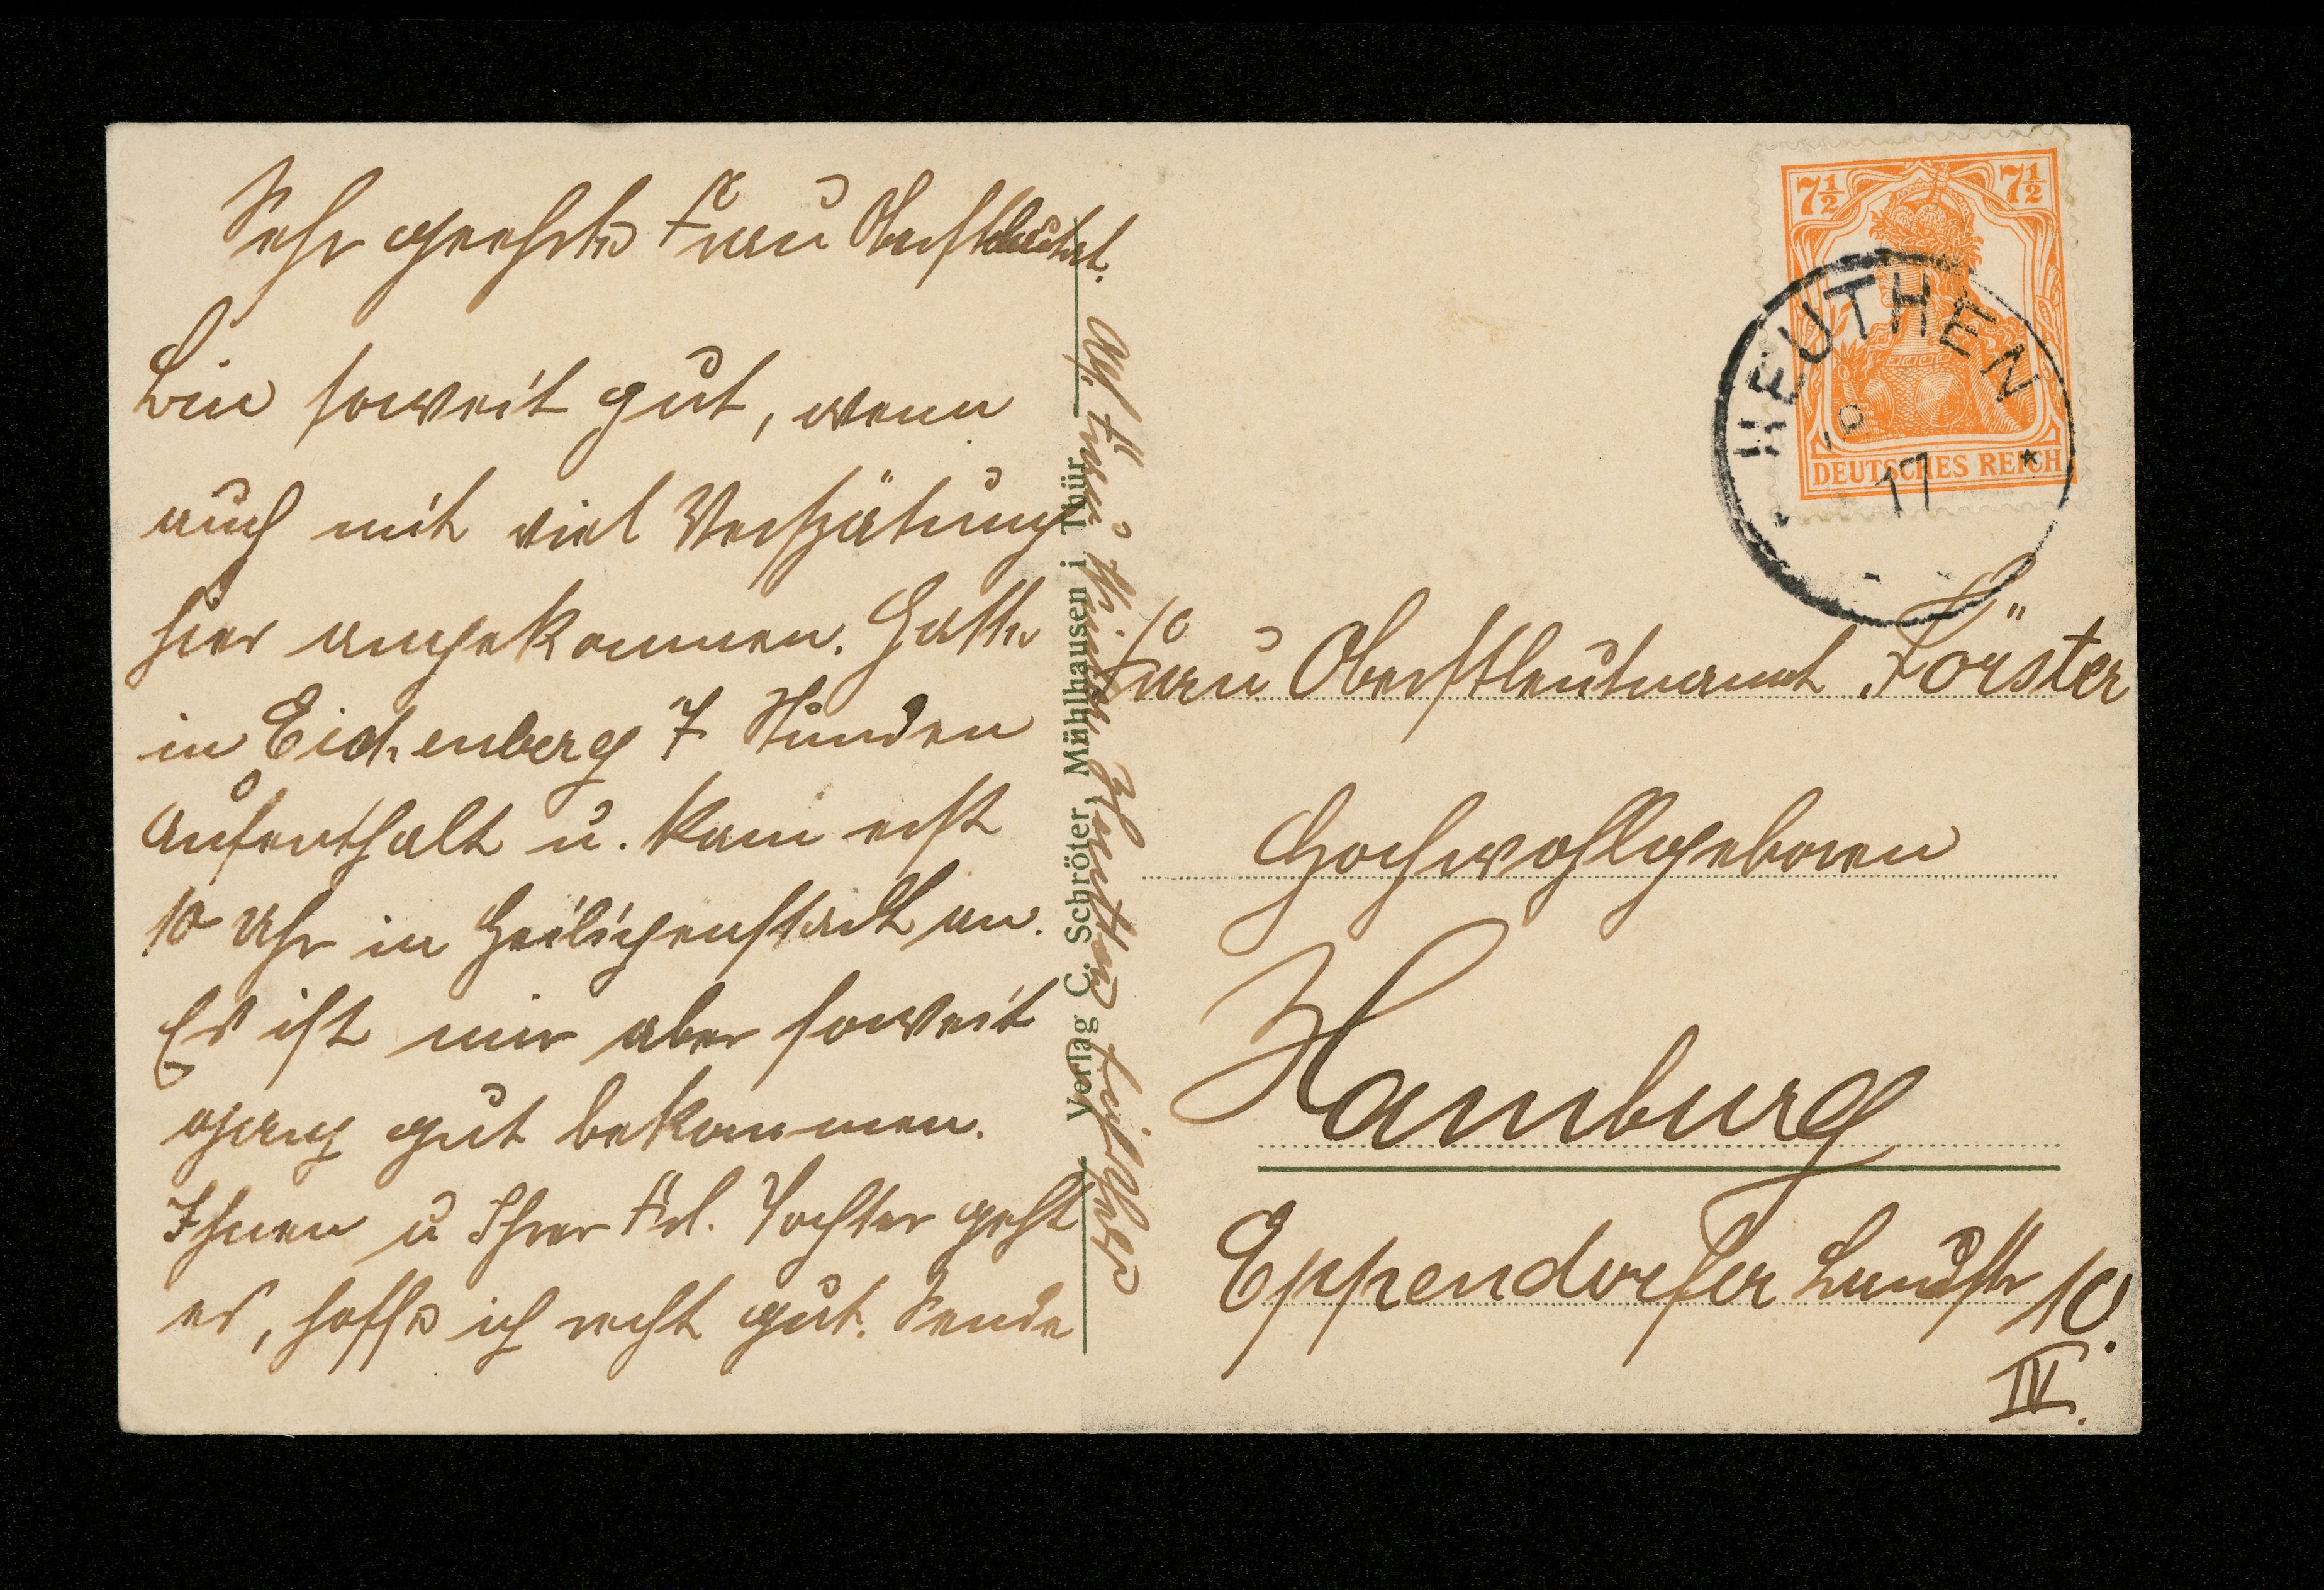 Sehr geehrte Frau Oberstleutnt.
Bin soweit gut, wenn
auch mit viel Verspätung
hier angekommen. Hatte
in Eichenberg 7 Stunden
Aufenthalt u. kam erst
10 Uhr in Heiligenstadt an.
Es ist mir aber soweit
ganz gut bekommen.
Ihnen u Ihrer Frl. Tochter geht
es, hoffe ich recht gut. Sende
Abs. Frau Heuthen Eichsfeld
Verlag C. Schröter, Mühlhausen i. Thür.
7½ 7½
DEUTSCHES REICH
HEUTHEN
17
Frau Oberstleutnant Förster
Hochwohlgeboren
Hamburg
Eppendorfer Landstr 10.
IV.